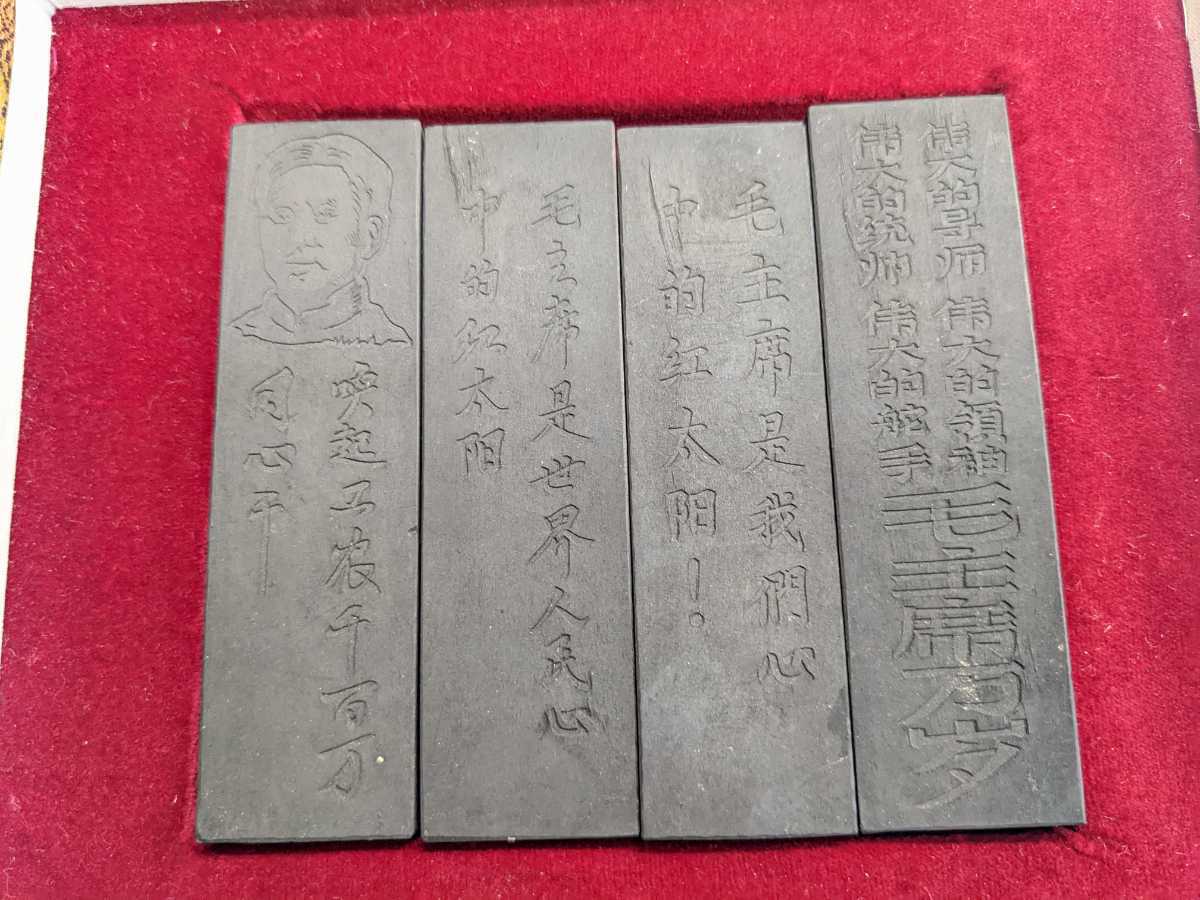 伟大的导师 伟大的領袖
伟大的统帅 伟大的舵手
毛主席万岁
毛主席是我們心
中的红太阳！
毛主席是世界人民心
中的红太阳
唤起工农千百万
同心干